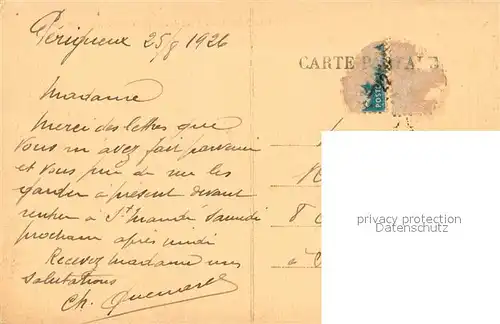 Périgueux 25/8 1926
CARTE POSTALE
POSTES
Madame
Merci des lettres que
vous m avez fait parvenir
et vous prie de me les
garder à présent devant
rentrer à St Mandé Samedi
prochain après midi
Recevez Madame mes
salutations
Ch.
à
privacy protection
Datenschutz